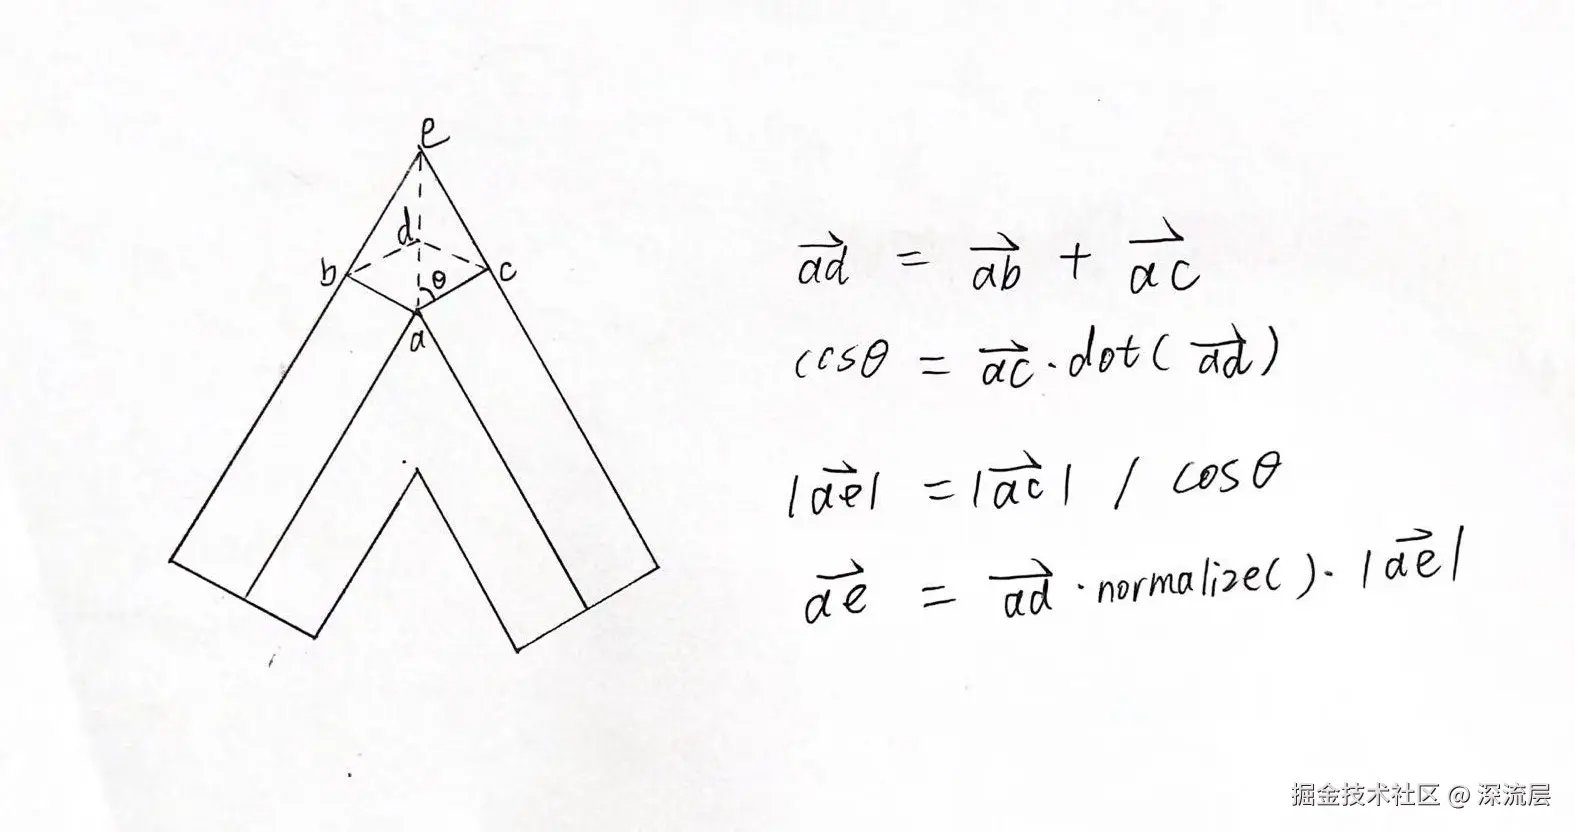 e
d
b
c
θ
a
ad = ab + ac
cosθ = ac · dot( ad )
|ae| = |ac| / cosθ
ae = ad · normalize() · |ae|
掘金技术社区 @ 深流层